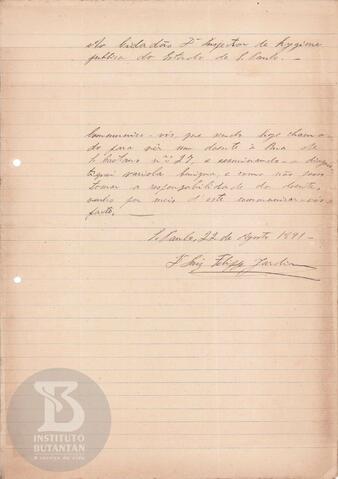 Ao Cidadão Dr Inspector de Hygiene
publica do Estado de S. Paulo.
Communico-vos, que sendo hoje chama-
do para vêr um doente á Rua de
nº 27, e examinando-o diagnos-
tiquei variola benigna, e como não posso
tomar a responsabilidade do doente,
venho por meio d'este communicar-vos o
facto.
S. Paulo, 22 de Agosto 1891
Dr Luiz Felippe Jardim
INSTITUTO
BUTANTAN
A serviço da vida